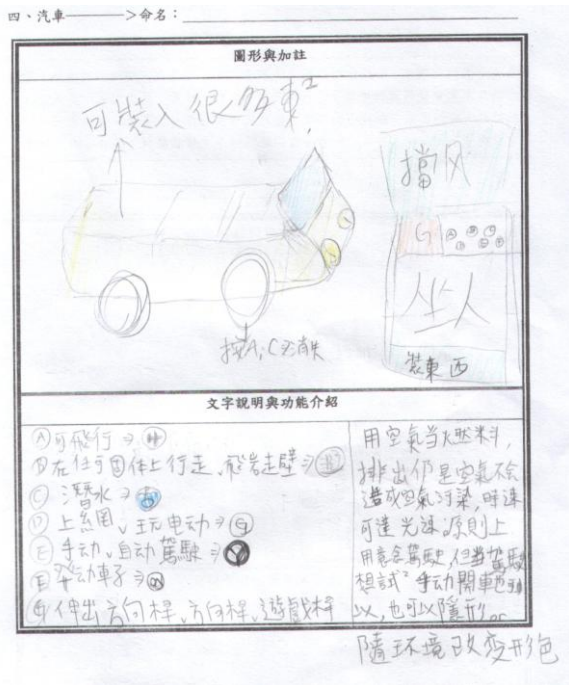 四、汽車————>命名：
圖形與加註
可裝入很多東
擋风
G
坐人
裝東西
文字說明與功能介紹
Ⓐ可飛行⇒
Ⓑ在任可固体上行走、飛岩走壁⇒
Ⓒ 潛水⇒
Ⓓ上網、玩电动⇒Ⓖ
Ⓔ手动、自动駕駛⇒
发动車子⇒
Ⓖ伸出方向桿、方向桿、遊戲桿
用空氣当燃料,
排出仍是空氣不会
造成空氣汙染,時速
可達光速原則上
用意念駕駛,但当駕駛
想試手动開車也可
以,也可以隱形or
隨环境改变形色